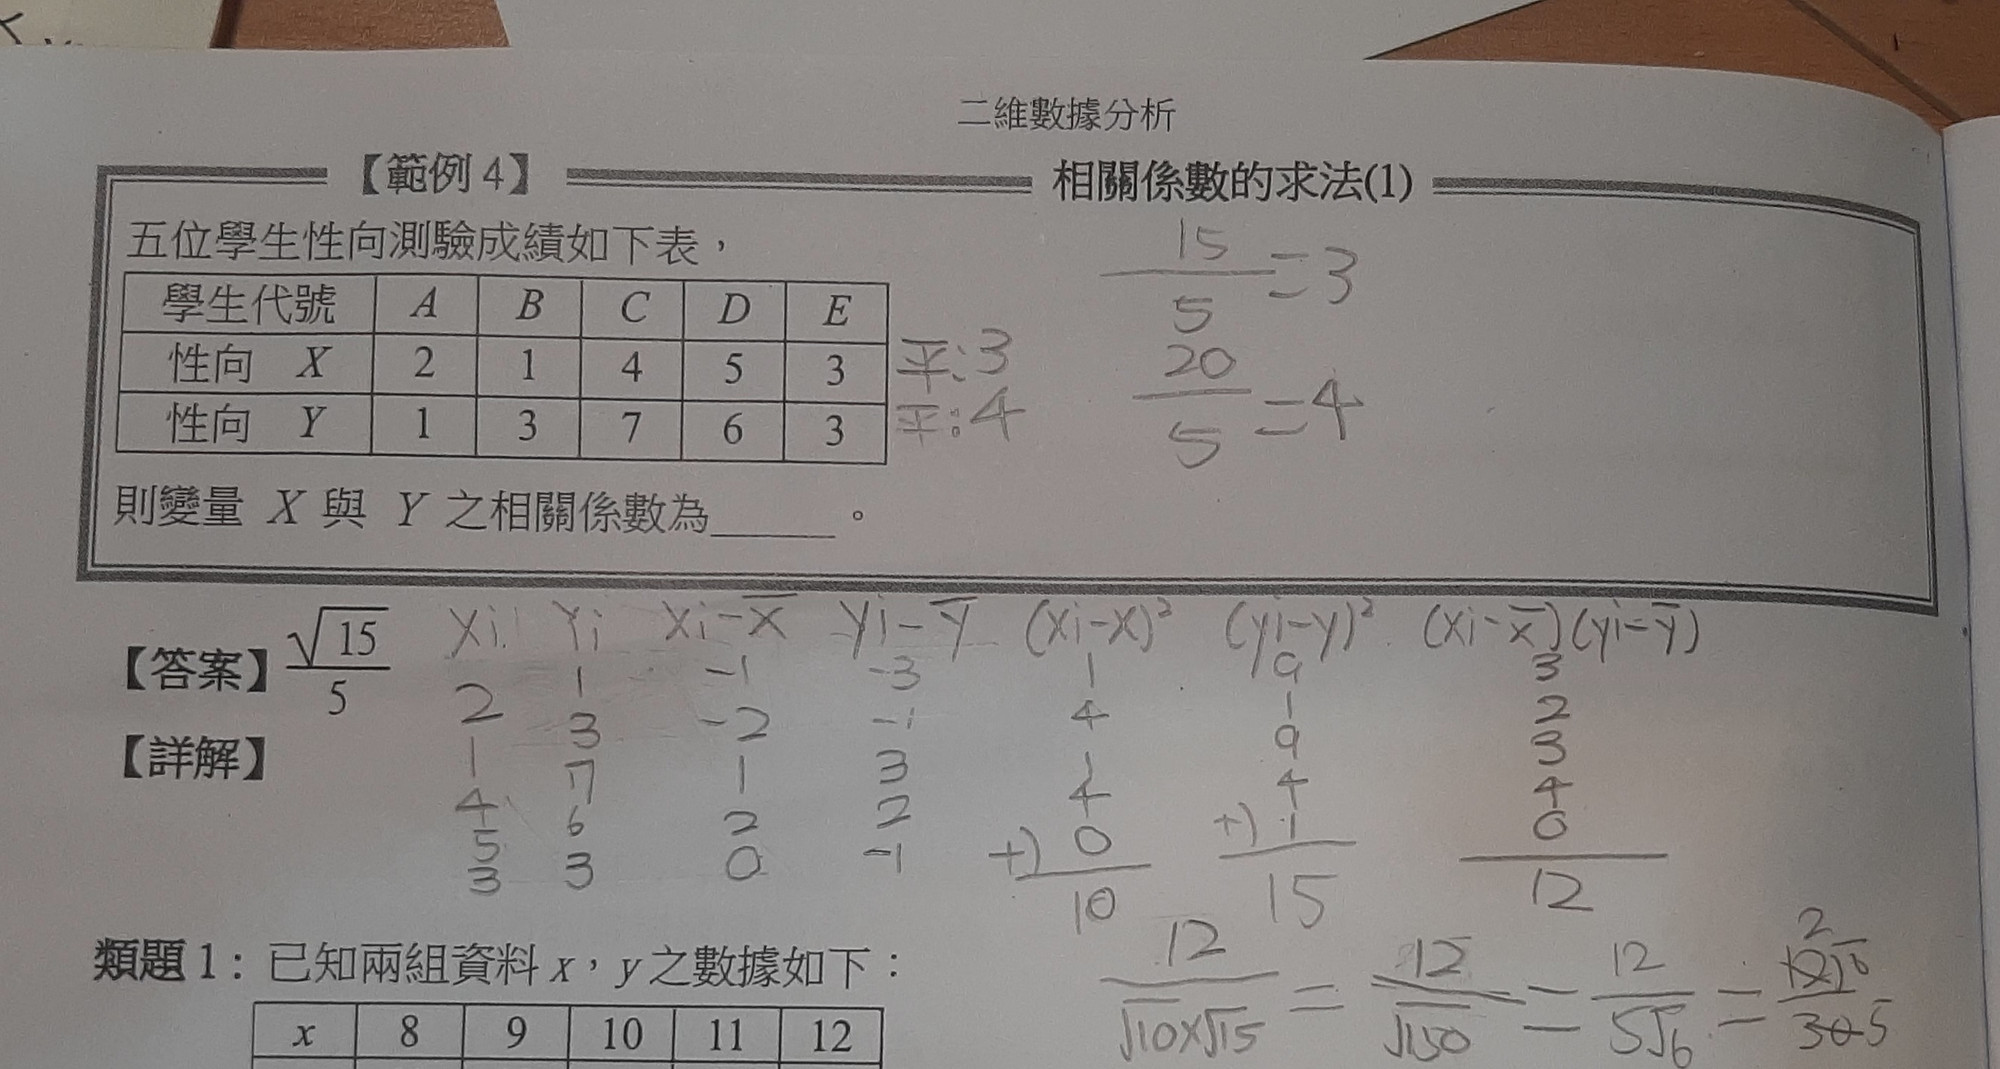 二維數據分析
【範例 4】 相關係數的求法(1)
五位學生性向測驗成績如下表，
學生代號 A B C D E
性向 X 2 1 4 5 3 平:3
性向 Y 1 3 7 6 3 平:4
15/5=3
20/5=4
則變量 X 與 Y 之相關係數為______。
【答案】√15/5
【詳解】
xi yi xi-x̄ yi-ȳ (xi-x)² (yi-y)² (xi-x̄)(yi-ȳ)
2 1 -1 -3 1 9 3
1 3 -2 -1 4 1 2
4 7 1 3 1 9 3
5 6 2 2 4 4 4
3 3 0 -1 +) 0 +) 1 0
10 15 12
12/√10×√15 = 12/√150 = 12/5√6 =
類題 1：已知兩組資料 x，y 之數據如下：
x 8 9 10 11 12